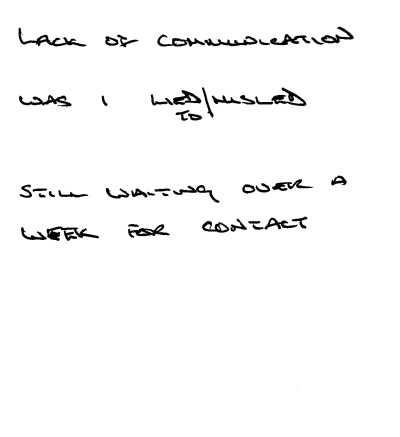 LACK OF COMMUNICATION
WAS I LIED/MISLED
TO
STILL WAITING OVER A
WEEK FOR CONTACT